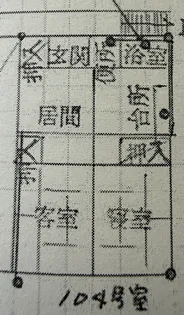 押入
玄関
便所
浴室
居間
台所
押入
押入
客室
寝室
104号室